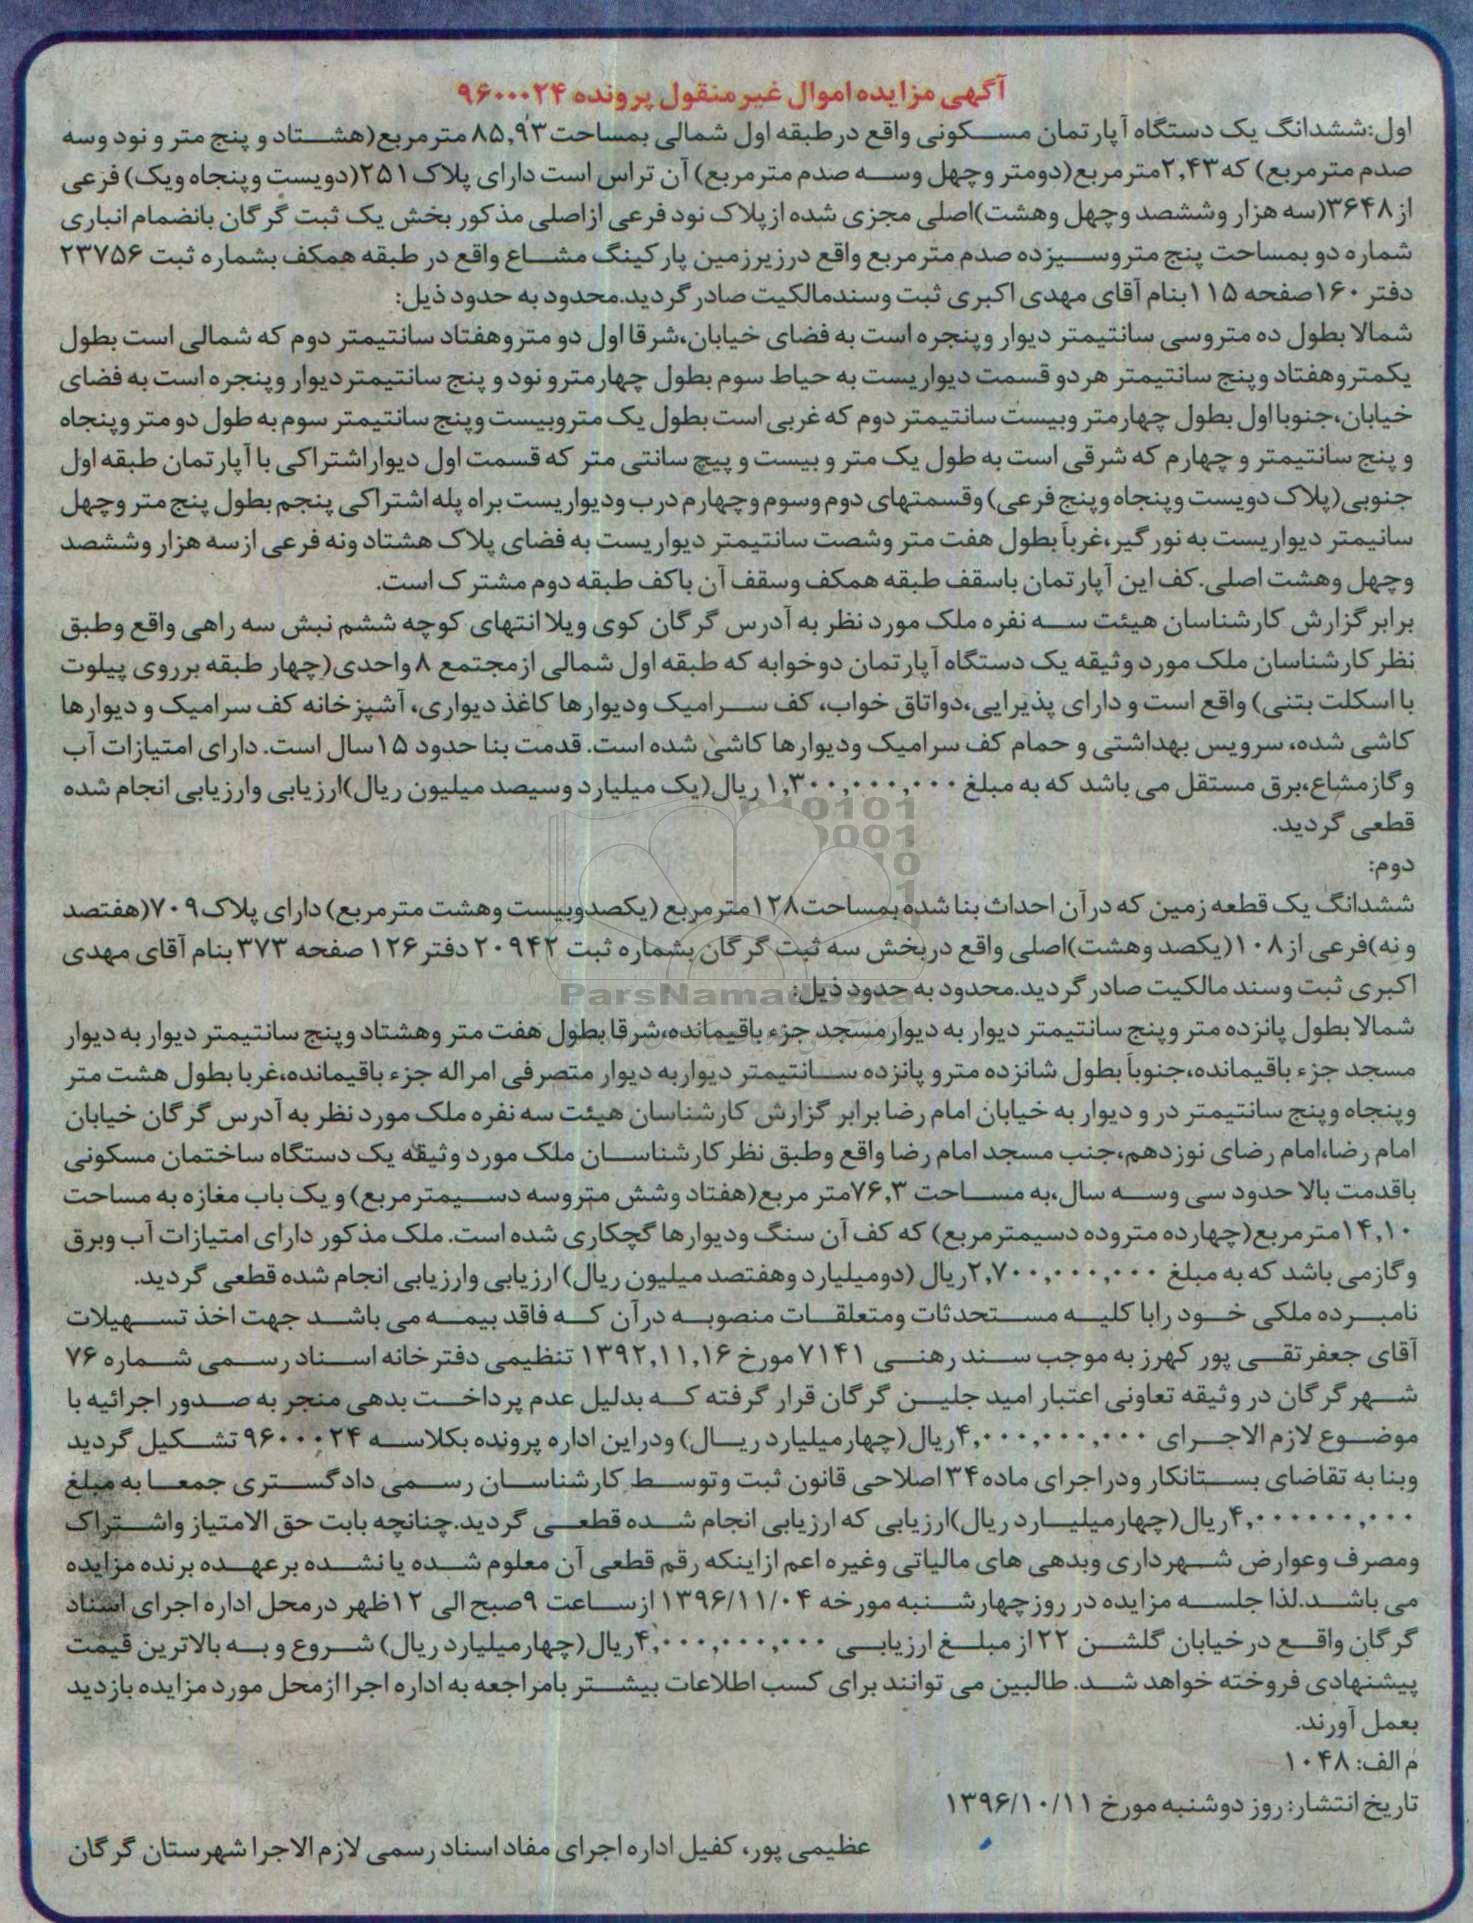 آگهی مزایده اموال غیر منقول پرونده ۹۶۰۰۰۲۴
اول:ششدانگ یک دستگاه آپارتمان مسکونی واقع درطبقه اول شمالی بمساحت ۸۵,۹۳ مترمربع(هشتاد و پنج متر و نود وسه
صدم مترمربع) که ۲,۴۳مترمربع(دومتر وچهل وسه صدم مترمربع) آن تراس است دارای پلاک ۲۵۱(دویست وپنجاه ویک) فرعی
از ۳۶۴۸(سه هزار وششصد وچهل وهشت)اصلی مجزی شده ازپلاک نود فرعی ازاصلی مذکور بخش یک ثبت گرگان بانضمام انباری
شماره دو بمساحت پنج متروسیزده صدم مترمربع واقع درزیرزمین پارکینگ مشاع واقع در طبقه همکف بشماره ثبت ۲۳۷۵۶
دفتر ۱۶۰صفحه ۱۱۵بنام آقای مهدی اکبری ثبت وسندمالکیت صادرگردید.محدود به حدود ذیل:
شمالا بطول ده متروسی سانتیمتر دیوار وپنجره است به فضای خیابان،شرقا اول دو متروهفتاد سانتیمتر دوم که شمالی است بطول
یکمتروهفتاد وپنج سانتیمتر هردو قسمت دیواریست به حیاط سوم بطول چهارمترو نود و پنج سانتیمتردیوار وپنجره است به فضای
خیابان،جنوبا اول بطول چهارمتر وبیست سانتیمتر دوم که غربی است بطول یک متروبیست وپنج سانتیمتر سوم به طول دو متر وپنجاه
و پنج سانتیمتر و چهارم که شرقی است به طول یک متر و بیست و پیچ سانتی متر که قسمت اول دیواراشتراکی با آپارتمان طبقه اول
جنوبی(پلاک دویست وپنجاه وپنج فرعی) وقسمتهای دوم وسوم وچهارم درب ودیواریست براه پله اشتراکی پنجم بطول پنج متر وچهل
سانیمتر دیواریست به نورگیر،غرباً بطول هفت متر وشصت سانتیمتر دیواریست به فضای پلاک هشتاد ونه فرعی ازسه هزار وششصد
وچهل وهشت اصلی.کف این آپارتمان باسقف طبقه همکف وسقف آن باکف طبقه دوم مشترک است.
برابر گزارش کارشناسان هیئت سه نفره ملک مورد نظر به آدرس گرگان کوی ویلا انتهای کوچه ششم نبش سه راهی واقع وطبق
نظر کارشناسان ملک مورد وثیقه یک دستگاه آپارتمان دوخوابه که طبقه اول شمالی ازمجتمع ۸واحدی(چهار طبقه برروی پیلوت
با اسکلت بتنی) واقع است و دارای پذیرایی،دواتاق خواب، کف سرامیک ودیوارها کاغذ دیواری، آشپزخانه کف سرامیک و دیوارها
کاشی شده، سرویس بهداشتی و حمام کف سرامیک ودیوارها کاشی شده است. قدمت بنا حدود ۱۵سال است. دارای امتیازات آب
وگازمشاع،برق مستقل می باشد که به مبلغ ۱,۳۰۰,۰۰۰,۰۰۰ ریال(یک میلیارد وسیصد میلیون ریال)ارزیابی وارزیابی انجام شده
قطعی گردید.
دوم:
ششدانگ یک قطعه زمین که درآن احداث بنا شده بمساحت۱۲۸مترمربع (یکصدوبیست وهشت مترمربع) دارای پلاک ۷۰۹(هفتصد
و نه)فرعی از ۱۰۸(یکصد وهشت)اصلی واقع دربخش سه ثبت گرگان بشماره ثبت ۲۰۹۴۲ دفتر ۱۲۶ صفحه ۳۷۳ بنام آقای مهدی
اکبری ثبت وسند مالکیت صادرگردید.محدود به حدود ذیل:
شمالا بطول پانزده متر وپنج سانتیمتر دیوار به دیوارمسجد جزء باقیمانده،شرقا بطول هفت متر وهشتاد وپنج سانتیمتر دیوار به دیوار
مسجد جزء باقیمانده،جنوباً بطول شانزده مترو پانزده سانتیمتر دیواربه دیوار متصرفی امراله جزء باقیمانده،غربا بطول هشت متر
وپنجاه وپنج سانتیمتر در و دیوار به خیابان امام رضا برابر گزارش کارشناسان هیئت سه نفره ملک مورد نظر به آدرس گرگان خیابان
امام رضا،امام رضای نوزدهم،جنب مسجد امام رضا واقع وطبق نظر کارشناسان ملک مورد وثیقه یک دستگاه ساختمان مسکونی
باقدمت بالا حدود سی وسه سال،به مساحت ۷۶,۳متر مربع(هفتاد وشش متروسه دسیمترمربع) و یک باب مغازه به مساحت
۱۴,۱۰مترمربع(چهارده متروده دسیمترمربع) که کف آن سنگ ودیوارها گچکاری شده است. ملک مذکور دارای امتیازات آب وبرق
وگازمی باشد که به مبلغ ۲,۷۰۰,۰۰۰,۰۰۰ریال (دومیلیارد وهفتصد میلیون ریال) ارزیابی وارزیابی انجام شده قطعی گردید.
نامبرده ملکی خود رابا کلیه مستحدثات ومتعلقات منصوبه درآن که فاقد بیمه می باشد جهت اخذ تسهیلات
آقای جعفرتقی پور کهرز به موجب سند رهنی ۷۱۴۱ مورخ ۱۳۹۲,۱۱,۱۶ تنظیمی دفترخانه اسناد رسمی شماره ۷۶
شهر گرگان در وثیقه تعاونی اعتبار امید جلین گرگان قرار گرفته که بدلیل عدم پرداخت بدهی منجر به صدور اجرائیه با
موضوع لازم الاجرای ۴,۰۰۰,۰۰۰,۰۰۰ریال(چهارمیلیارد ریال) ودراین اداره پرونده بکلاسه ۹۶۰۰۰۲۴ تشکیل گردید
وبنا به تقاضای بستانکار ودراجرای ماده ۳۴ اصلاحی قانون ثبت وتوسط کارشناسان رسمی دادگستری جمعا به مبلغ
۴,۰۰۰۰۰۰,۰۰۰ریال(چهارمیلیارد ریال)ارزیابی که ارزیابی انجام شده قطعی گردید.چنانچه بابت حق الامتیاز واشتراک
ومصرف وعوارض شهرداری وبدهی های مالیاتی وغیره اعم ازاینکه رقم قطعی آن معلوم شده یا نشده برعهده برنده مزایده
می باشد.لذا جلسه مزایده در روزچهارشنبه مورخه ۱۳۹۶/۱۱/۰۴ ازساعت ۹صبح الی ۱۲ظهر درمحل اداره اجرای اسناد
گرگان واقع درخیابان گلشن ۲۲از مبلغ ارزیابی ۴,۰۰۰,۰۰۰,۰۰۰ریال(چهارمیلیارد ریال) شروع و به بالاترین قیمت
پیشنهادی فروخته خواهد شد. طالبین می توانند برای کسب اطلاعات بیشتر بامراجعه به اداره اجرا ازمحل مورد مزایده بازدید
بعمل آورند.
م الف: ۱۰۴۸
تاریخ انتشار: روز دوشنبه مورخ ۱۳۹۶/۱۰/۱۱
عظیمی پور، کفیل اداره اجرای مفاد اسناد رسمی لازم الاجرا شهرستان گرگان
ParsNamadData